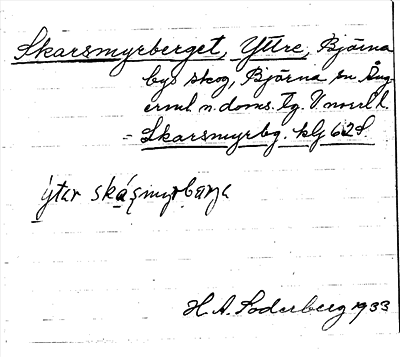 Skarsmyrberget, Yttre, Bjärna
bys skog, Bjärna sn Ång-
erml n. doms. lg. V norrl l.
= Skarsmyrbg. kbl 62S.
ytar skásmyrbarja
H. A. Söderberg 1933